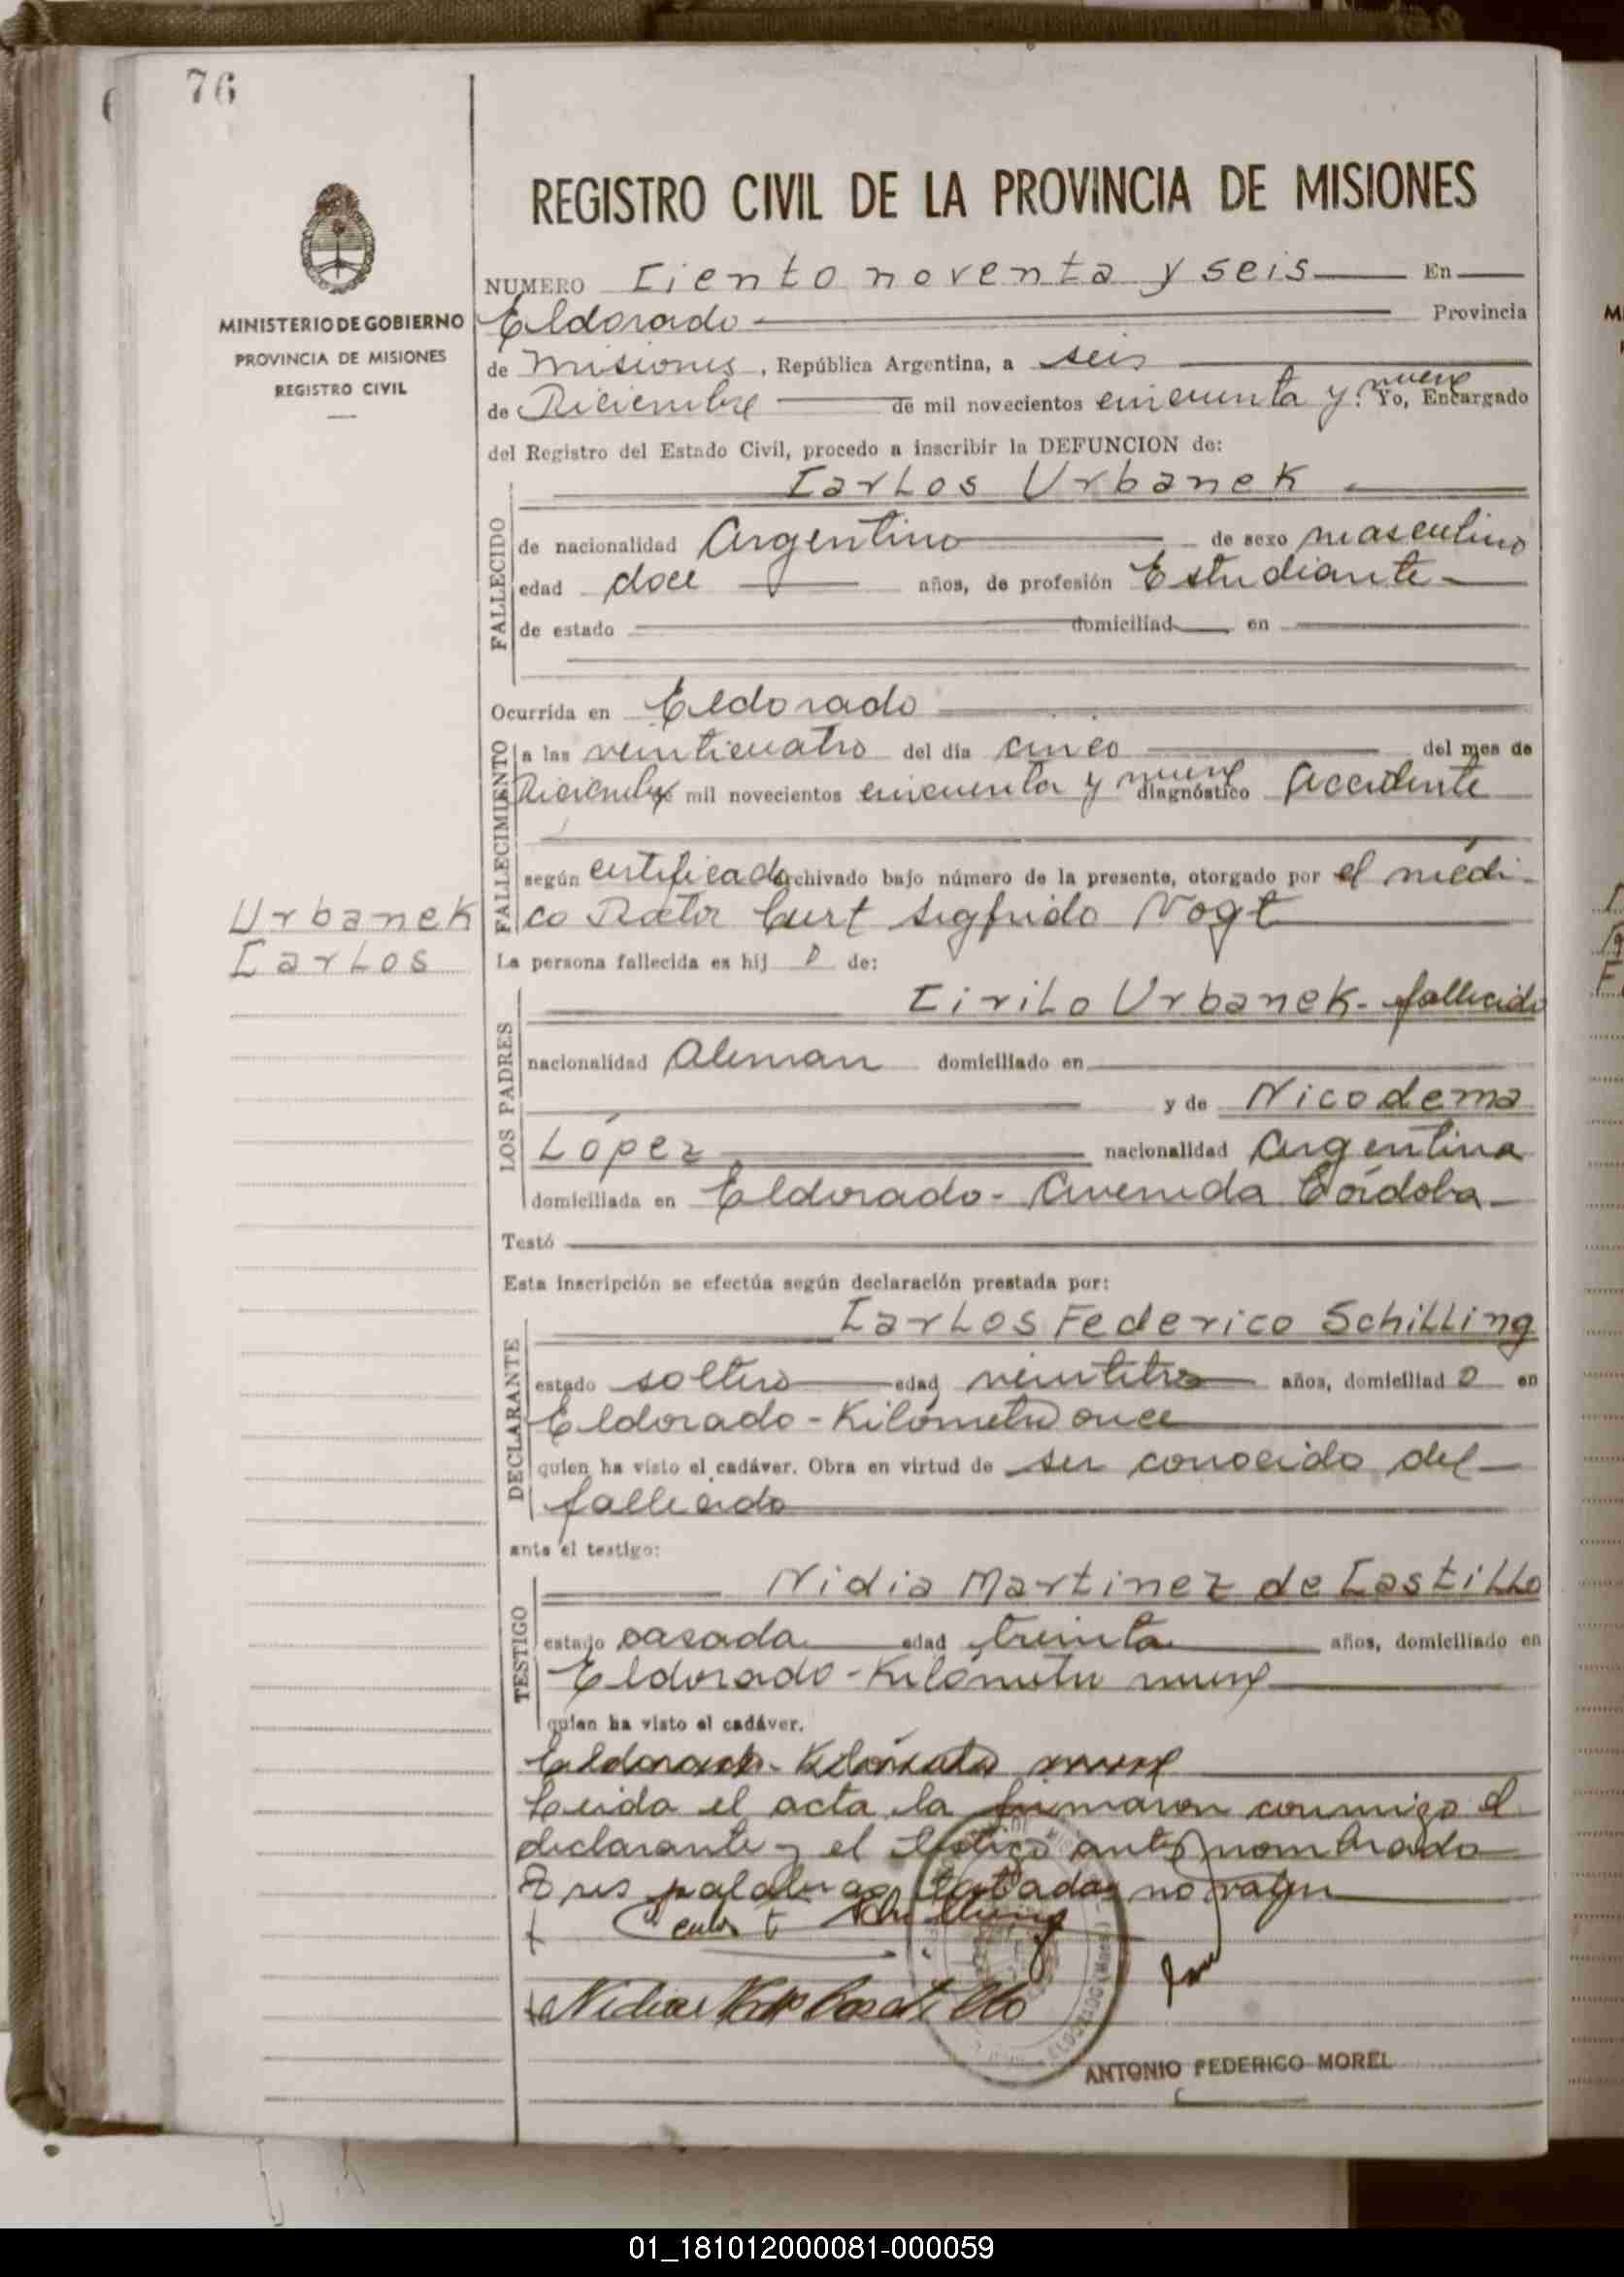 76
REGISTRO CIVIL DE LA PROVINCIA DE MISIONES
MINISTERIO DE GOBIERNO
PROVINCIA DE MISIONES
REGISTRO CIVIL
NUMERO Ciento noventa y seis En
Eldorado Provincia
de Misiones, República Argentina, a seis
de Diciembre de mil novecientos cincuenta y nueve. Yo, Encargado
del Registro del Estado Civil, procedo a inscribir la DEFUNCION de:
Carlos Urbanek
FALLECIDO
de nacionalidad Argentino de sexo masculino
edad doce años, de profesión Estudiante
de estado domiciliad en
Ocurrida en Eldorado
FALLECIMIENTO
a las veinticuatro del día cinco del mes de
Diciembre mil novecientos cincuenta y nueve diagnóstico Accidente
según certificado archivado bajo número de la presente, otorgado por el médi-
co Doctor Curt Sigfrido Vogt
Urbanek
Carlos
La persona fallecida es hijo de:
LOS PADRES
Cirilo Urbanek - fallecido
nacionalidad Aleman domiciliado en
y de Nicodema
López nacionalidad Argentina
domiciliada en Eldorado - Avenida Córdoba
Testó
Esta inscripción se efectúa según declaración prestada por:
DECLARANTE
Carlos Federico Schilling
estado soltero edad veintitres años, domiciliado en
Eldorado - Kilómetro once
quien ha visto el cadáver. Obra en virtud de ser conocido del
fallecido
ante el testigo:
TESTIGO
Nidia Martinez de Castillo
estado casada edad treinta años, domiciliado en
Eldorado - Kilómetro nueve
quien ha visto el cadáver.
Eldorado - Kilómetro nueve
Leida el acta la firmaron conmigo el
declarante y el testigo antes nombrado
Tres palabras testadas no valen
Schilling
Nidia Castillo
ANTONIO FEDERICO MOREL
01_181012000081-000059